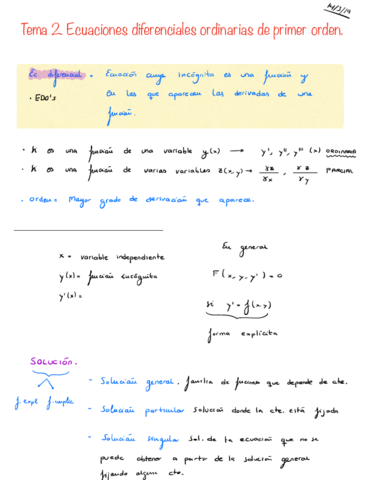 14/3/19
Tema 2. Ecuaciones diferenciales ordinarias de primer orden.
Ec diferencial = Ecuación cuya incógnita es una función y
• EDO's en las que aparecen las derivadas de una
función.
• K es una función de una variable y(x) → y', y'', y''' (x) ORDINARIA
• K es una función de varias variables z(x,y) → γz/γx, γz/γy PARCIAL
• Orden = Mayor grado de derivación que aparece.
x = variable independiente
y(x) = función incógnita
y'(x) =
En general
F(x, y, y') = 0
si y' = f(x,y)
forma explícita
SOLUCIÓN.
f. expl f. implic
- Solución general. familia de funciones que depende de cte.
- Solución particular solución donde la cte. está fijada
- Solución singular sol. de la ecuación que no se
puede obtener a partir de la solución general
fijando alguna cte.